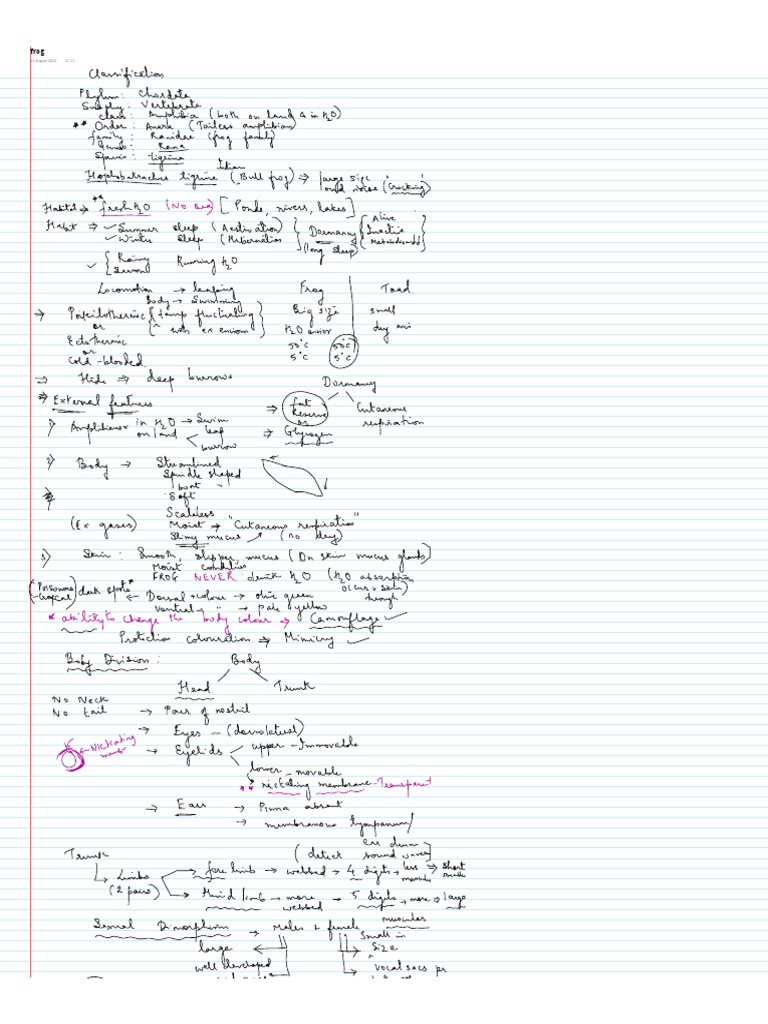 frog
Classification
Phylum: Chordata
Vertebrata
Class: Amphibia (both on land & in H2O)
** Order: Anura (Tailess amphibian)
family: Ranidae (frog family)
Genus: Rana
Species: tigrina
Hoplobatrachus tigrina (Indian Bull frog) ⇒ large size
loud noise (Croaking)
Habitat → ** fresh H2O (No Sea) [Ponds, rivers, lakes]
Habit ⇒ ✓ Summer sleep (Aestivation) } Dormancy { Alive
✓ Winter sleep (Hibernation) (long sleep) Inactive
✓ { Rainy Running H2O
Season
Locomotion → leaping Frog | Toad
Body → Swimming
→ Poikilothermic { temp fluctuating } Big size small
or H2O
Ectothermic 50°C 50°C
or 5°C 5°C
Cold-blooded
⇒ Hide ⇒ deep burrows
Dormancy
⇒ External features ⇒ fat Reserve Cutaneous respiration
or
⇒ Glycogen
1) Amphibian in H2O → Swim
on land leap
burrow
2) Body → Streamlined
Spindle shaped
boat "
Soft
Scaleless
(Ex gases) Moist → "Cutaneous respiration"
Slimy mucus (no dry)
3) Skin: Smooth, slippery, mucus (On skin mucus glands)
Moist condition
FROG NEVER drink H2O (H2O absorption
occurs through skin)
(Poisonous dark spots * ← Dorsal colour → olive green
ventral " → pale yellow
* ability to change the body colour → Camouflage ✓
Protection colouration ⇒ Mimicry ✓
Body Division: Body
Head Trunk
No Neck
No tail → Pair of nostril
→ Eyes - (dorsolateral)
← Nictitating → Eyelids upper - Immovable
lower - movable
** nictating membrane - Transparent
→ Ears → Pinna absent
→ membranous tympanum/
ear drum
(detect sound waves)
Trunk
↳ Limbs → fore limb → webbed → 4 digits → less → short
(2 pairs)
→ Hind limb → more webbed → 5 digits → more muscular → large
Sexual Dimorphism → Males & female
large Small in size
well developed vocal sacs